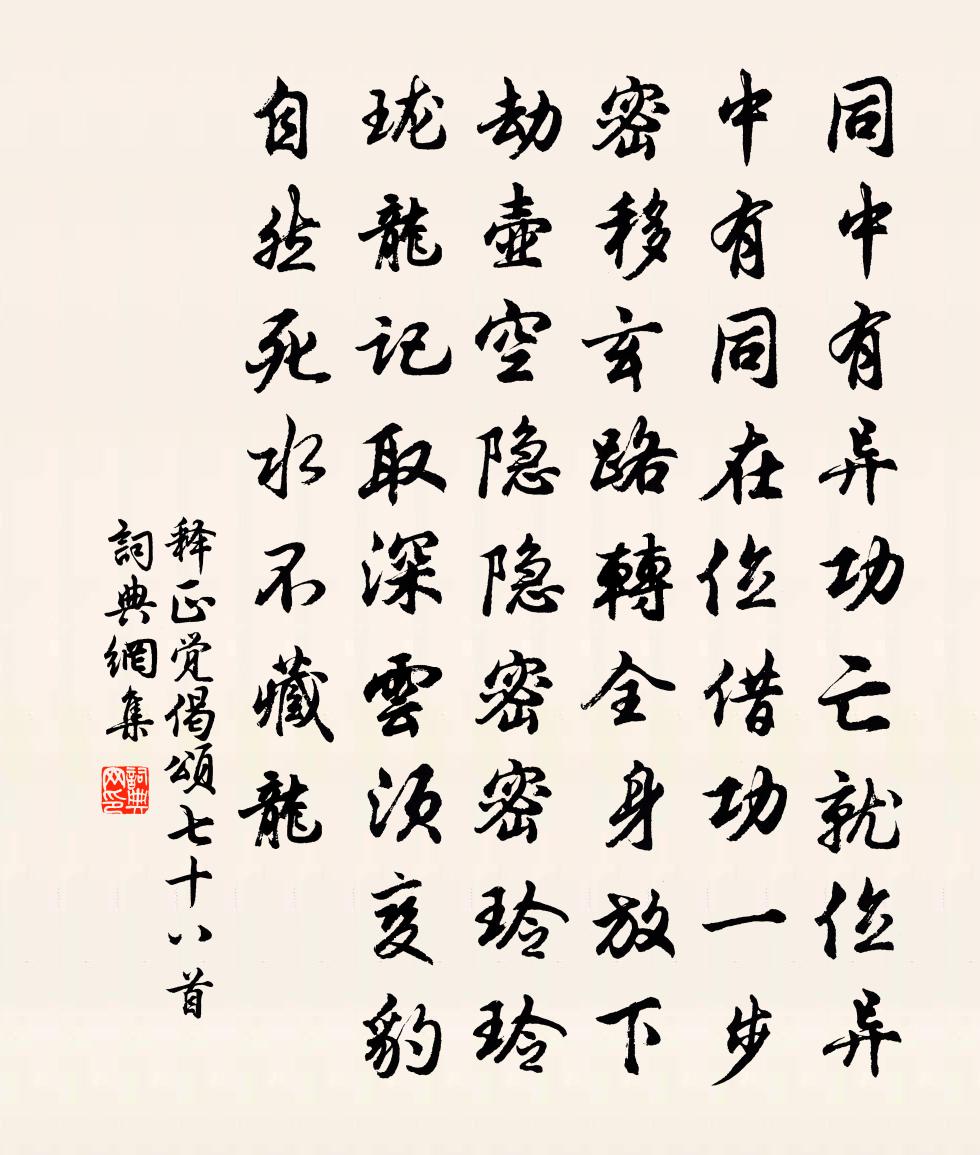 同中有异功亡就位异
中有同在位借功一步
密移玄路轉全身放下
劫壺空隐隐密密玲玲
珑龍记取深雲须变豹
自然死水不藏龍
释正觉偈頌七十八首
詞典網集
詞典网印